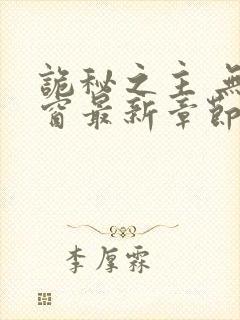 詭秘之主 無
窗最新章節
李厚霖